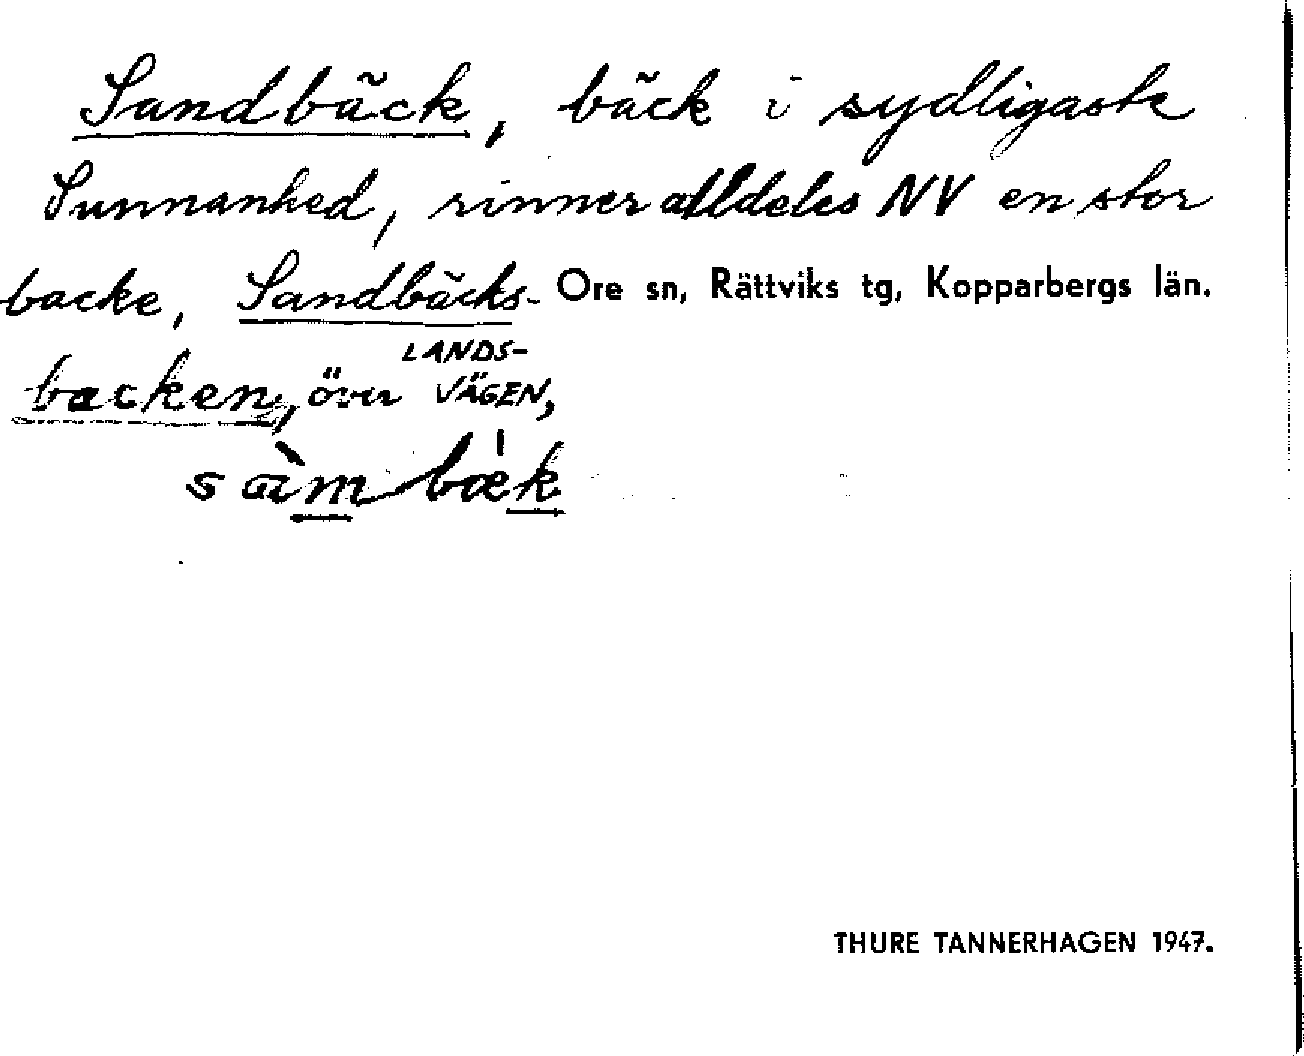 Sandbäck, bäck i sydligaste
Sunnanhed, rinner alldeles NV en stor
backe, Sandbäcks- Ore sn, Rättviks tg, Kopparbergs län.
LANDS-
backen, över VÄGEN,
sàm bæ̍k
THURE TANNERHAGEN 1947.